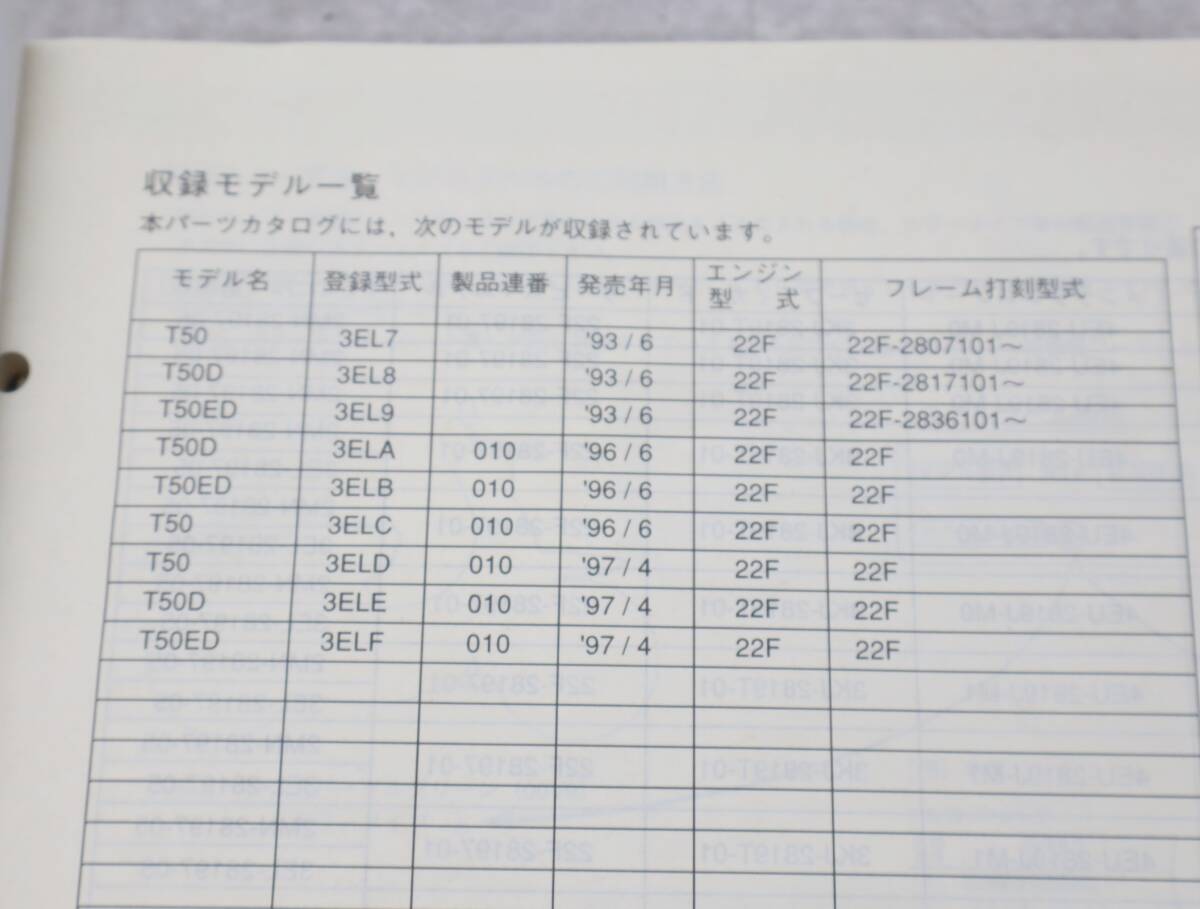 収録モデル一覧
本パーツカタログには、次のモデルが収録されています。
モデル名 登録型式 製品連番 発売年月 エンジン型式 フレーム打刻型式
T50 3EL7 '93/6 22F 22F-2807101～
T50D 3EL8 '93/6 22F 22F-2817101～
T50ED 3EL9 '93/6 22F 22F-2836101～
T50D 3ELA 010 '96/6 22F 22F
T50ED 3ELB 010 '96/6 22F 22F
T50 3ELC 010 '96/6 22F 22F
T50 3ELD 010 '97/4 22F 22F
T50D 3ELE 010 '97/4 22F 22F
T50ED 3ELF 010 '97/4 22F 22F